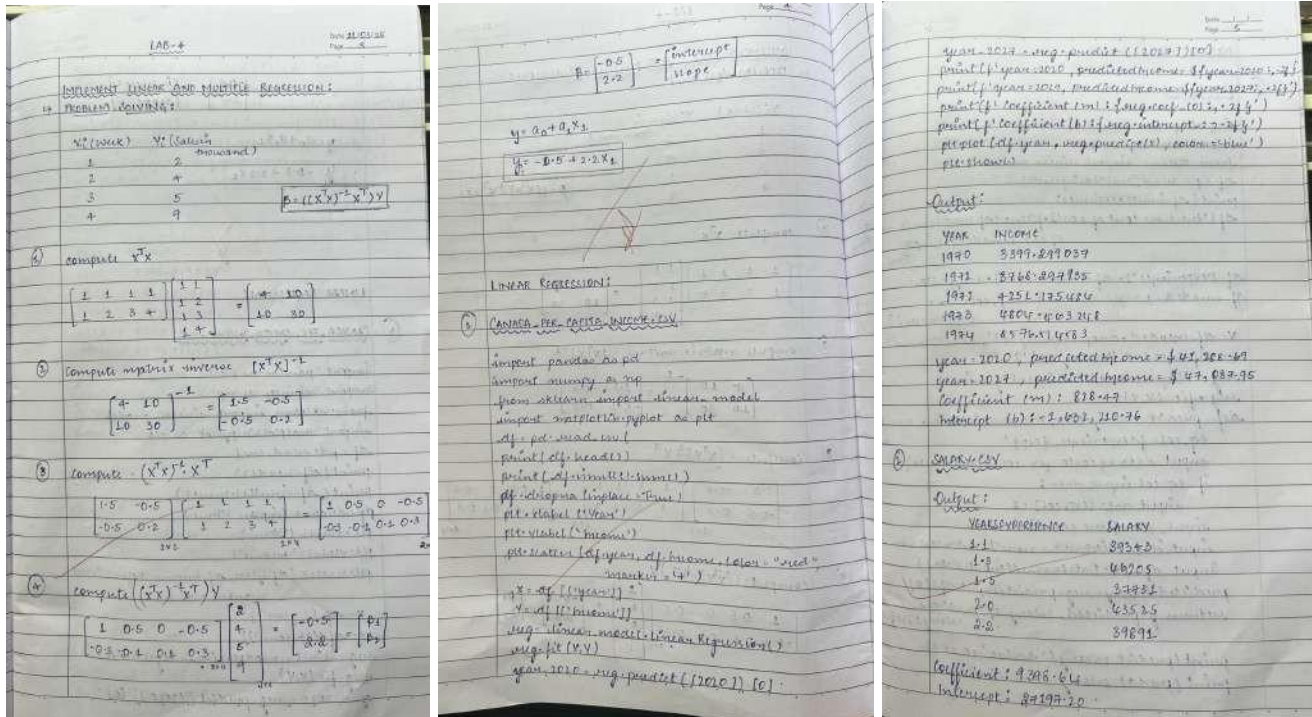 LAB-4
Date 21/03/25
Page 3
IMPLEMENT LINEAR AND MULTIPLE REGRESSION:
↳ PROBLEM SOLVING:
Xi (week) Yi (Sales in thousand)
1 2
2 4
3 5
4 9
β = ((XᵀX)⁻¹ Xᵀ) Y
① compute XᵀX
[1 1 1 1; 1 2 3 4] [1 1; 1 2; 1 3; 1 4] = [4 10; 10 30]
② compute matrix inverse [XᵀX]⁻¹
[4 10; 10 30]⁻¹ = [1.5 -0.5; -0.5 0.2]
③ compute (XᵀX)⁻¹ · Xᵀ
[1.5 -0.5; -0.5 0.2] 2×2 [1 1 1 1; 1 2 3 4] 2×4 = [1 0.5 0 -0.5; -0.3 -0.1 0.1 0.3]
④ compute ((XᵀX)⁻¹Xᵀ) Y
[1 0.5 0 -0.5; -0.3 -0.1 0.1 0.3] [2; 4; 5; 9] = [-0.5; 2.2] = [β1; β2]
Page 4
β = [-0.5; 2.2] = [intercept; slope]
y = a₀ + a₁x₁
y = -0.5 + 2.2x₁
LINEAR REGRESSION:
① CANADA_PER_CAPITA_INCOME.CSV
import pandas as pd
import numpy as np
from sklearn import linear_model
import matplotlib.pyplot as plt
df = pd.read_csv(
print(df.head())
print(df.isnull().sum())
df.dropna(inplace=True)
plt.xlabel('Year')
plt.ylabel('Income')
plt.scatter(df.year, df.income, color="red",
marker='+')
X = df[['year']]
Y = df[['income']]
reg = linear_model.LinearRegression()
reg.fit(X,Y)
year_2020 = reg.predict([[2020]])[0]
Date
Page 5
year_2027 = reg.predict([[2027]])[0]
plt.plot(df.year, reg.predict(x), color='blue')
plt.show()
Output:
YEAR INCOME
1970 3399.299037
1971 3768.297935
1972 4251.175484
1973 4804.463248
1974 8576.514683
year = 2020, predicted income = $ 41,288.69
year = 2027, predicted income = $ 47,087.95
Coefficient (m): 828.47
Intercept (b): -1,632,210.76
② SALARY.CSV
Output:
YEARSEXPERIENCE SALARY
1.1 39343
1.3 46205
1.5 37731
2.0 43525
2.2 39891
Coefficient: 9398.64
Intercept: